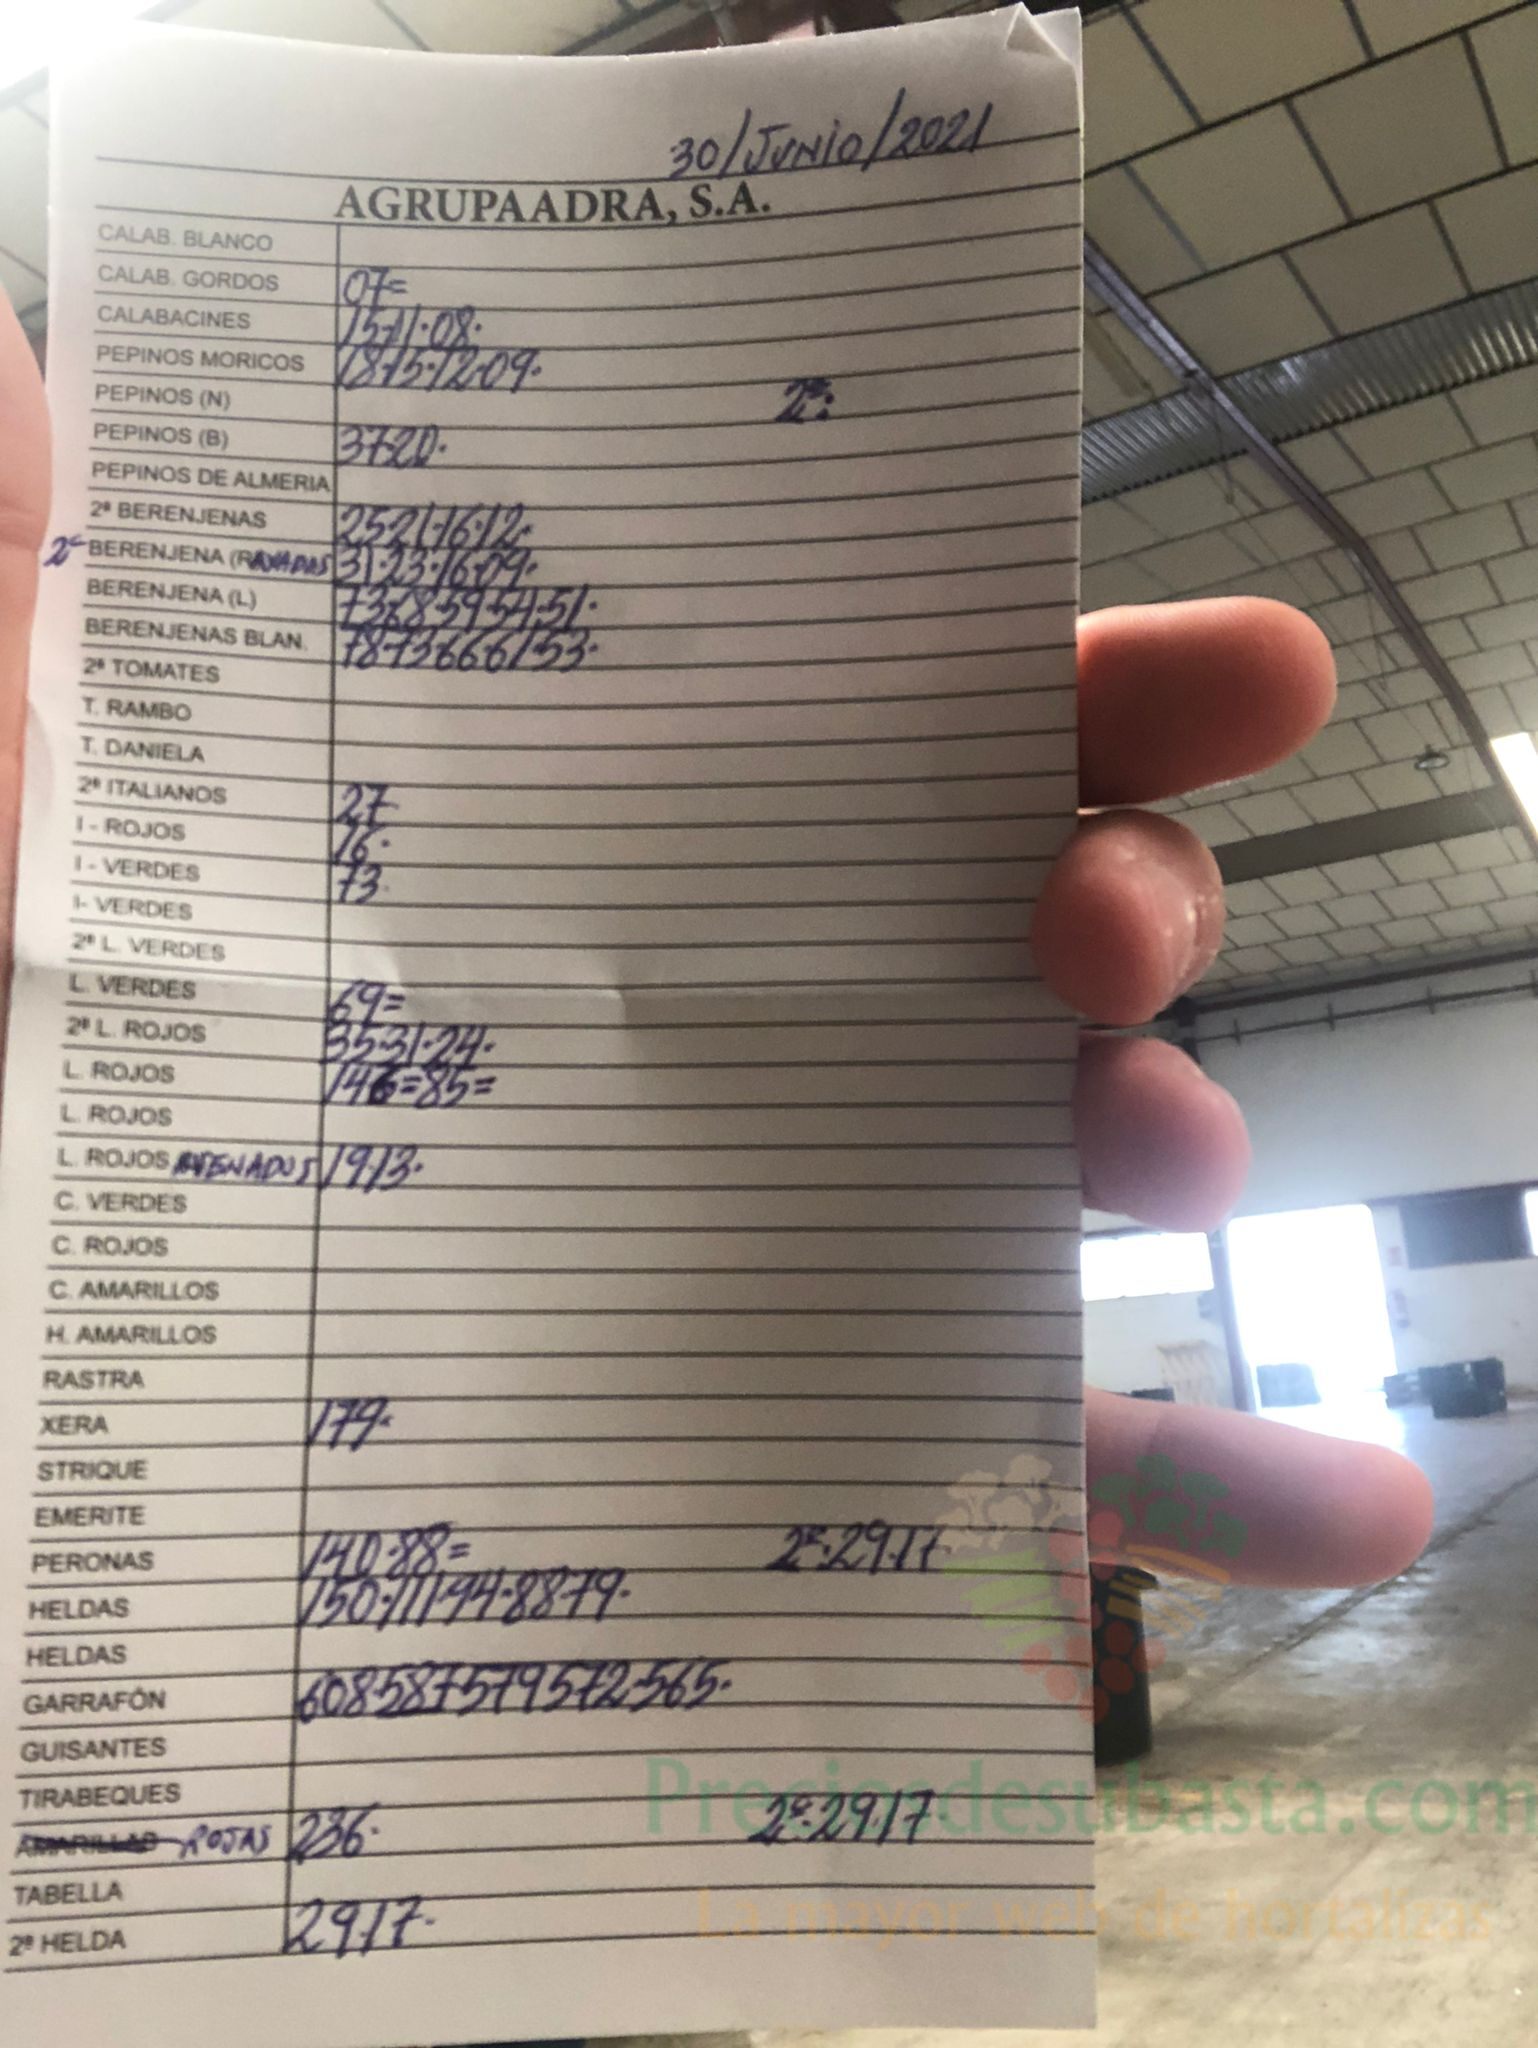 30/JUNIO/2021
AGRUPAADRA, S.A.
CALAB. BLANCO
CALAB. GORDOS 07=
CALABACINES 15·11·08·
PEPINOS MORICOS 18·15·12·09·
PEPINOS (N) 2ª:
PEPINOS (B) 37·20·
PEPINOS DE ALMERIA
2ª BERENJENAS 25·21·16·12·
2ª BERENJENA (RAYADAS 31·23·16·09·
BERENJENA (L) 73·68·59·54·51·
BERENJENAS BLAN. 78·73·66·61·53·
2ª TOMATES
T. RAMBO
T. DANIELA
2ª ITALIANOS 27·
I - ROJOS 16·
I - VERDES 73·
I- VERDES
2ª L. VERDES
L. VERDES 69=
2ª L. ROJOS 35·31·24·
L. ROJOS 146=85=
L. ROJOS
L. ROJOS 19·13·
C. VERDES
C. ROJOS
C. AMARILLOS
H. AMARILLOS
RASTRA
XERA 179·
STRIQUE
EMERITE
PERONAS 140·88= 2ª·29·17
HELDAS 150·111·94·88·79·
HELDAS
GARRAFÓN 608·587·579·572·565·
GUISANTES
TIRABEQUES
AMARILLAS ROJAS 236· 2ª·29·17
TABELLA
2ª HELDA 29·17·
Preciosdesubasta.com
La mayor web de hortalizas